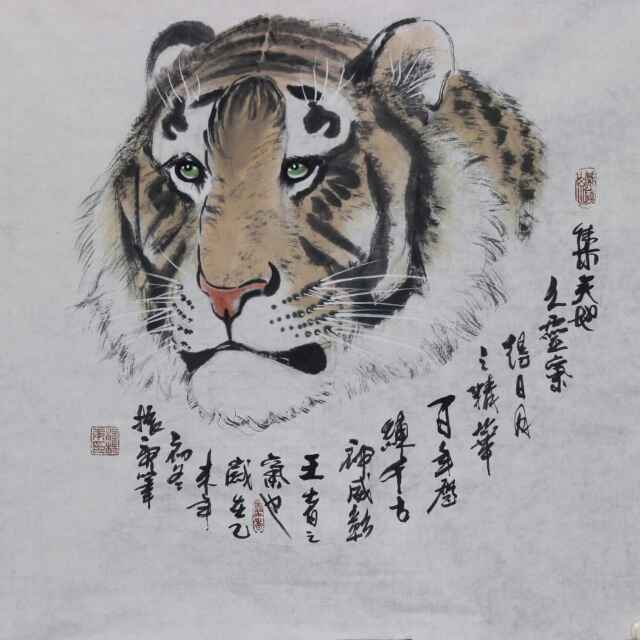 集天地
之靈氣
日月
之精華
百年歷
練千古
神威
王者之
氣也
歲在
未年
初冬